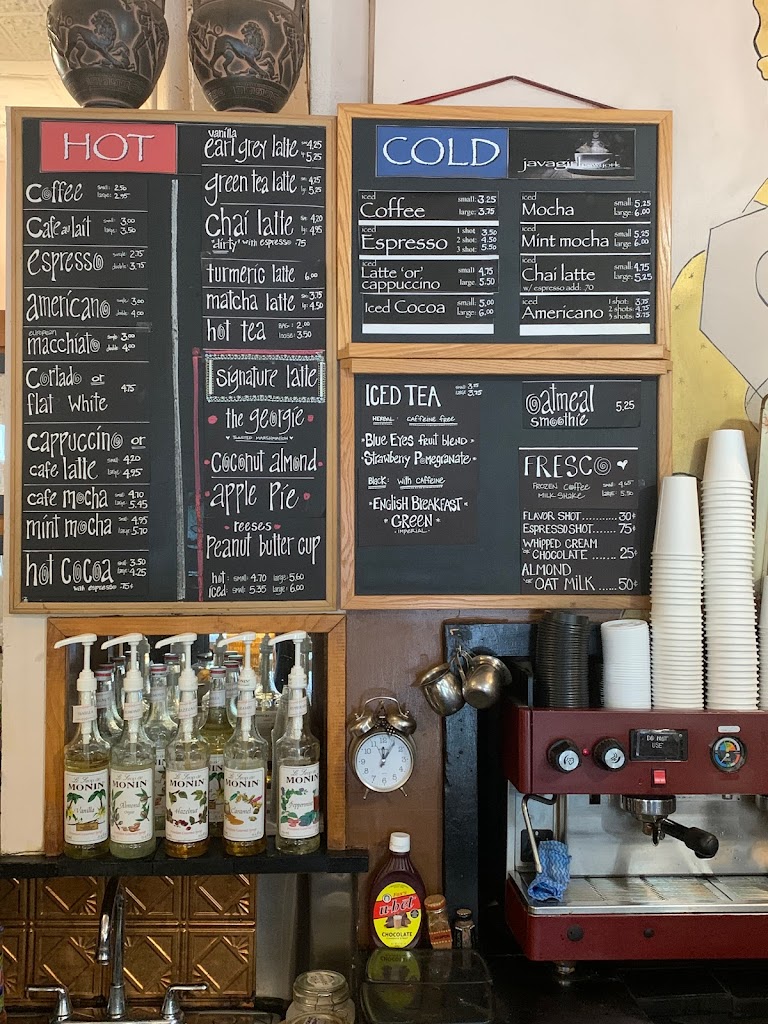 HOT
Coffee small: 2.50
large: 2.95
Cafe au lait small: 3.00
large: 4.00
espresso single 2.75
double 3.75
americano single 3.00
double 4.00
european
macchiato single 3.00
double 4.00
Cortado or
flat White 4.75
cappuccino or
cafe latte small 4.20
large 4.95
cafe mocha small 4.70
large 5.45
mint mocha small 4.95
large 5.70
hot cocoa small 3.50
large 4.25
with espresso .75¢
vanilla
earl grey latte sm 4.25
lg 5.25
green tea latte sm 4.25
lg 5.25
chai latte sm 4.20
lg 4.95
"dirty" with espresso .75
turmeric latte 6.00
matcha latte sm 3.75
lg 4.50
hot tea BAG: 2.00
loose: 3.50
signature latte
the georgie
TOASTED MARSHMALLOW
coconut almond
apple pie
reeses
Peanut butter cup
hot: small: 4.70 large: 5.60
iced: small: 5.35 large: 6.00
COLD
javagirl
iced
Coffee small: 3.25
large: 3.75
iced
Espresso 1 shot: 3.50
2 shot: 4.50
3 shot: 5.50
iced
Latte 'or'
cappuccino small 4.75
large. 5.50
Iced Cocoa small: 5.00
large: 6.00
iced
Mocha small: 5.25
large: 6.00
iced
Mint mocha small 5.25
large: 6.00
iced
Chai latte small: 4.75
large: 5.25
w/ espresso add: .70
iced
Americano 1 shot: 3.75
2 shots: 4.75
3 shots: 5.75
ICED TEA small 3.25
large: 3.75
HERBAL: caffeine free
"Blue Eyes fruit blend"
"Strawberry Pomegranate"
Black: with caffeine
"English Breakfast"
"GREEN"
-IMPERIAL-
oatmeal
smoothie 5.25
FRESCO
FROZEN COFFEE
MILKSHAKE
small: 4.65
large: 5.50
FLAVOR SHOT..........30¢
ESPRESSO SHOT.......75¢
WHIPPED CREAM
"or" CHOCOLATE ......25¢
ALMOND
"or" OAT MILK.....50¢
MONIN
Vanilla
MONIN
Almond
MONIN
Hazelnut
MONIN
Caramel
MONIN
Peppermint
u-bet
CHOCOLATE
DO NOT
USE